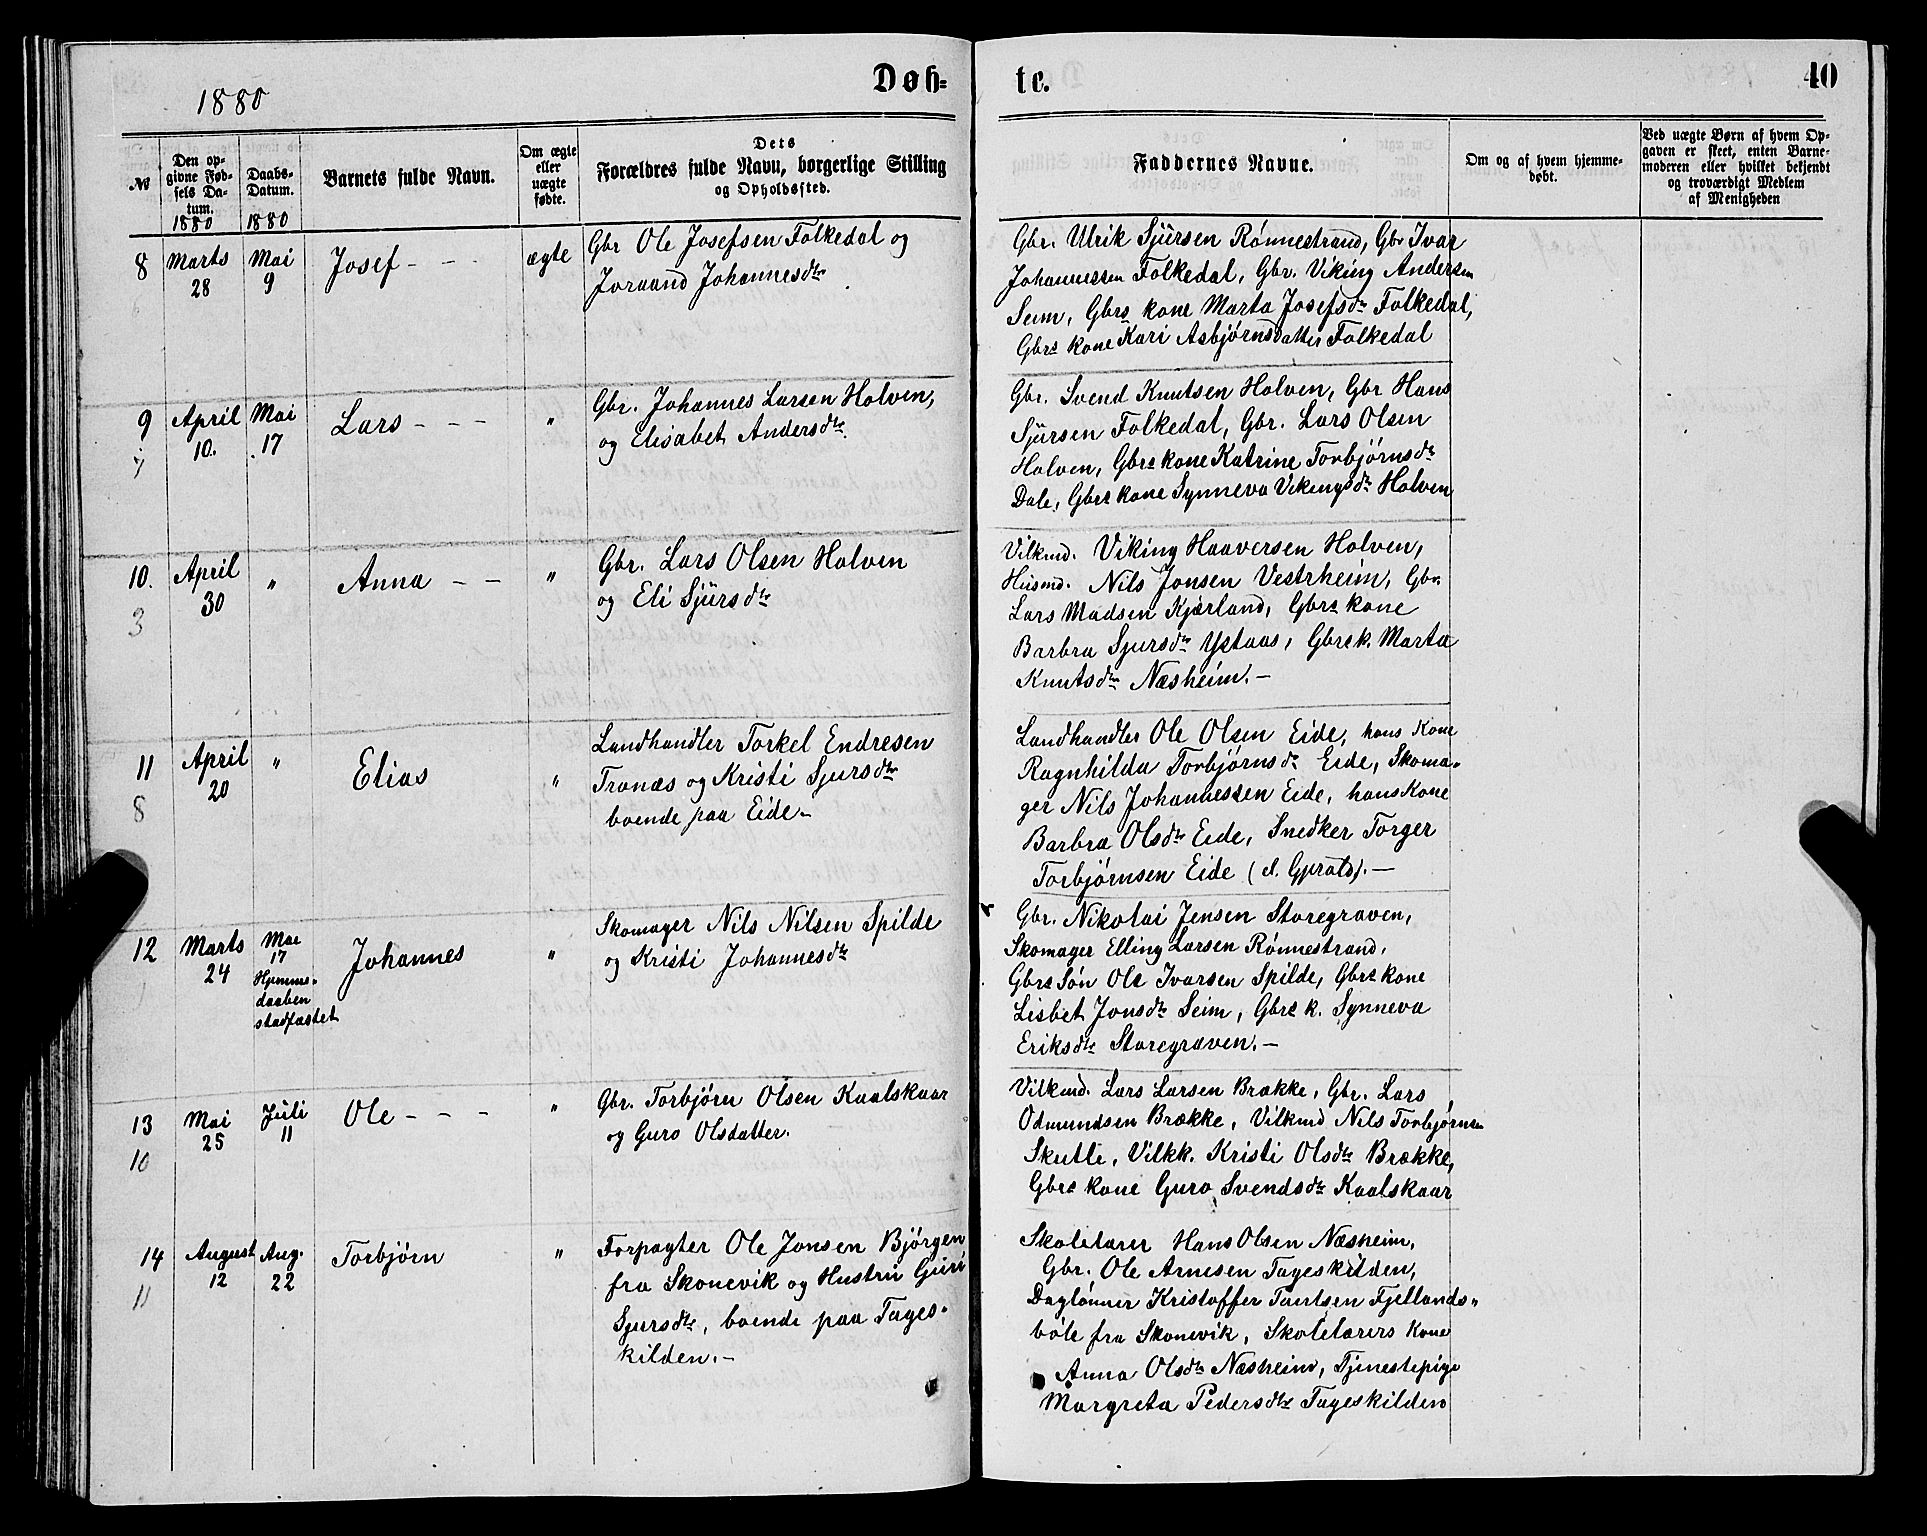 1880
Døb-
te.
40
№
Den op-
givne Fød-
sels Da-
tum.
1880
Daabs-
Datum.
1880
Barnets fulde Navn.
Om ægte
eller
uægte
fødte.
Dets
Forældres fulde Navn, borgerlige Stilling
og Opholdssted.
Faddernes Navne.
Om og af hvem hjemme-
døbt.
Ved uægte Børn af hvem Op-
gaven er skeet, enten Barne-
moderen eller hvilket bekjendt
og troværdigt Medlem
af Menigheden
8
Marts
28
Mai
9
Josef - - -
ægte
Gbr Ole Josefsen Folkedal og
Joraand Johannesdtr
Gbr. Ulrik Sjursen Rønnestrand, Gbr Ivar
Johannessen Folkedal, Gbr. Viking Andersen
Seim, Gbrs kone Marta Josefsdr Folkedal,
Gbrs kone Kari Asbjørnsdatter Folkedal
9
7
April
10.
Mai
17
Lars - - -
"
Gbr. Johannes Larsen Holven,
og Elisabet Andersdtr.
Gbr. Svend Knutsen Holven, Gbr Hans
Sjursen Folkedal, Gbr. Lars Olsen
Holven, Gbrs kone Katrine Torbjørnsdr
Dale, Gbrs kone Synneva Vikingsdr Holven
10.
3
April
30
"
Anna - -
"
Gbr. Lars Olsen Holven
og Eli Sjursdtr
Vilkmd. Viking Haaversen Holven,
Husmd. Nils Jonsen Vestrheim, Gbr.
Lars Madsen Kjærland, Gbrs kone
Barbra Sjursdtr Ystaas, Gbrs k. Marta
Knutsdtr Næsheim. -
11
8
April
20
"
Elias
"
Landhandler Torkel Endresen
Tranæs og Kristi Sjursdtr
boende paa Eide -
Landhandler Ole Olsen Eide, hans Kone
Ragnhilda Torbjørnsdr Eide, Skoma-
ger Nils Johannessen Eide, hans Kone
Barbra Olsdtr Eide, Snedker Torger
Torbjørnsen Eide -
12
Marts
24
Mai
17
Hjemme-
daaben
stadfæstet
Johannes
"
Skomager Nils Nilsen Spilde
og Kristi Johannesdtr
Gbr. Nikolai Jensen Storegraven,
Skomager Elling Larsen Rønnestrand,
Gbrs Søn Ole Ivarsen Spilde, Gbrs kone
Lisbet Jonsdtr Seim, Gbrs k. Synneva
Eriksdtr Storegraven. -
13
10
Mai
25
Juli
11
Ole - - -
"
Gbr. Torbjørn Olsen Kaalskaar
og Guro Olsdatter.
Vilkmd. Lars Larsen Brække, Gbr. Lars
Odmundsen Brække, Vilkmd Nils Torbjørnsen
Skutle, Vilkk. Kristi Olsdtr Brække,
Gbrs kone Guro Svendsdtr Kaalskaar
14
11
August
12
Aug.
22
Torbjørn
"
Forpagter Ole Jonsen Bjørgen
fra Skonevik og Hustru Guri
Sjursdtr, boende paa Tages-
kilden. -
Skolelærer Hans Olsen Næsheim,
Gbr. Ole Arnesen Tageskilden,
Daglønner Kristoffer Fjellands-
bøle fra Skonevik, Skolelærers Kone
Anna Olsdtr Næsheim, Tjenestepige
Margreta Pedersdtr Tageskilden